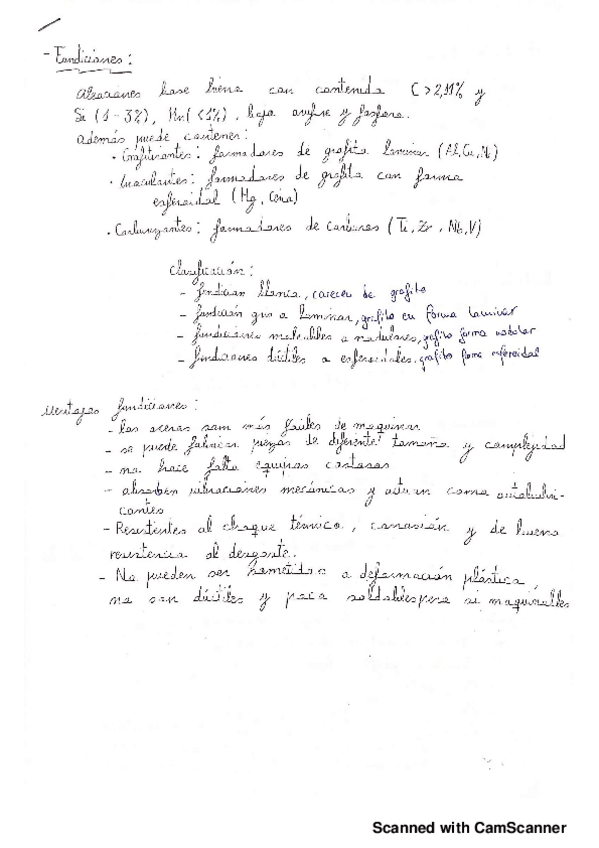 - Fundiciones:
Aleaciones base hierro con contenido C > 2,11% y
Si (1-3%), Mn (<1%). bajo azufre y fósforo.
Además puede contener:
· Grafitizantes: formadores de grafito laminar (Al, Cu, Ni)
· Inoculantes: formadores de grafito con forma
esferoidal (Mg, Cerio)
· Carburizantes: formadores de carburos (Ti, Zr, Nb, V)
Clasificación:
- fundición blanca, carecen de grafito
- fundición gris o laminar, grafito en forma laminar
- fundiciones maleables o nodulares, grafito forma nodular
- fundiciones dúctiles o esferoidales, grafito forma esferoidal
Ventajas fundiciones:
- los aceros son más fáciles de maquinar
- se puede fabricar piezas de diferente tamaño y complejidad
- no hace falta equipos costosos
- absorben vibraciones mecánicas y actuan como autolubri-
cantes
- Resistentes al choque térmico, corrosión y de buena
resistencia al desgaste.
- No pueden ser sometidas a deformación plástica,
no son dúctiles y poco soldables pero si maquinables
Scanned with CamScanner